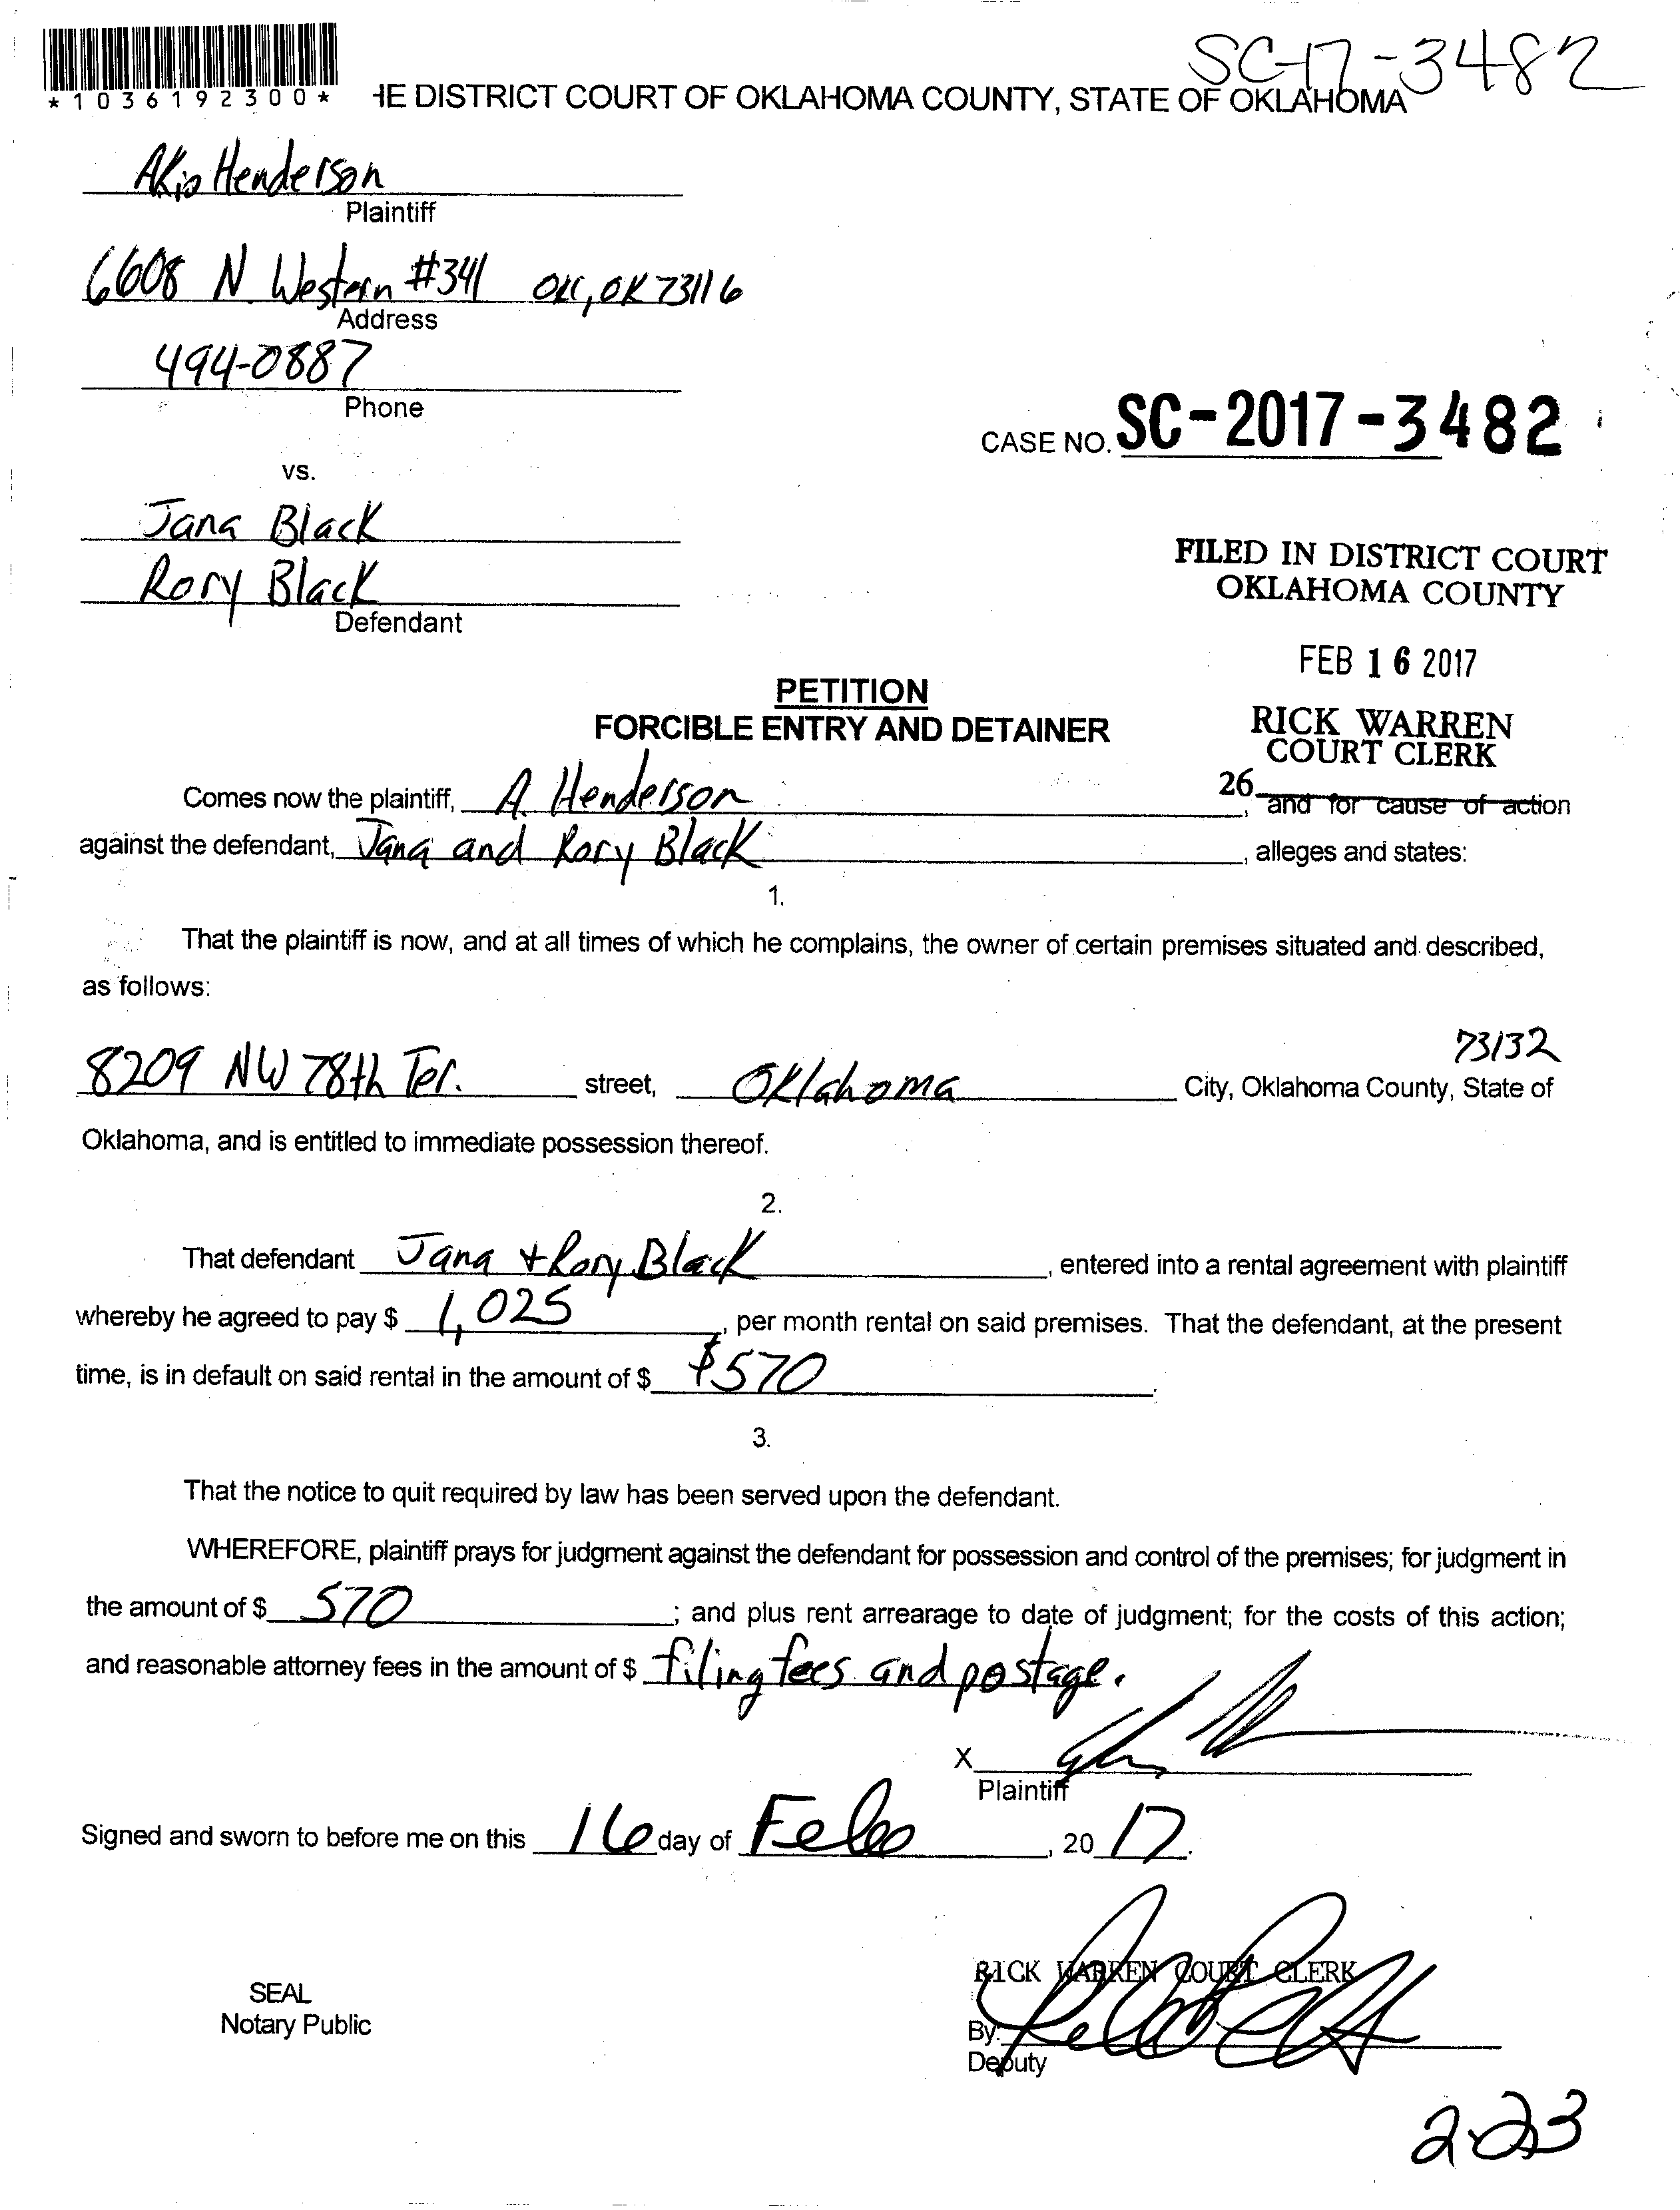 SC-17-3482
*1036192300*
HE DISTRICT COURT OF OKLAHOMA COUNTY, STATE OF OKLAHOMA
Akio Henderson
Plaintiff
6608 N. Western #341 OKC, OK 73116
Address
494-0887
Phone
CASE NO. SC-2017-3482
vs.
Jana Black
Rory Black
Defendant
FILED IN DISTRICT COURT
OKLAHOMA COUNTY
FEB 16 2017
RICK WARREN
COURT CLERK
26
PETITION
FORCIBLE ENTRY AND DETAINER
Comes now the plaintiff, A. Henderson, and for cause of action
against the defendant, Jana and Rory Black, alleges and states:
1.
That the plaintiff is now, and at all times of which he complains, the owner of certain premises situated and described,
as follows:
73132
8209 NW 78th Ter. street, Oklahoma City, Oklahoma County, State of
Oklahoma, and is entitled to immediate possession thereof.
2.
That defendant Jana + Rory Black, entered into a rental agreement with plaintiff
whereby he agreed to pay $ 1,025, per month rental on said premises. That the defendant, at the present
time, is in default on said rental in the amount of $ $570.
3.
That the notice to quit required by law has been served upon the defendant.
WHEREFORE, plaintiff prays for judgment against the defendant for possession and control of the premises; for judgment in
the amount of $ 570; and plus rent arrearage to date of judgment; for the costs of this action;
and reasonable attorney fees in the amount of $ filing fees and postage.
X
Plaintiff
Signed and sworn to before me on this 16 day of Feb, 2017.
RICK WARREN COURT CLERK
SEAL
Notary Public
By:
Deputy
2-23